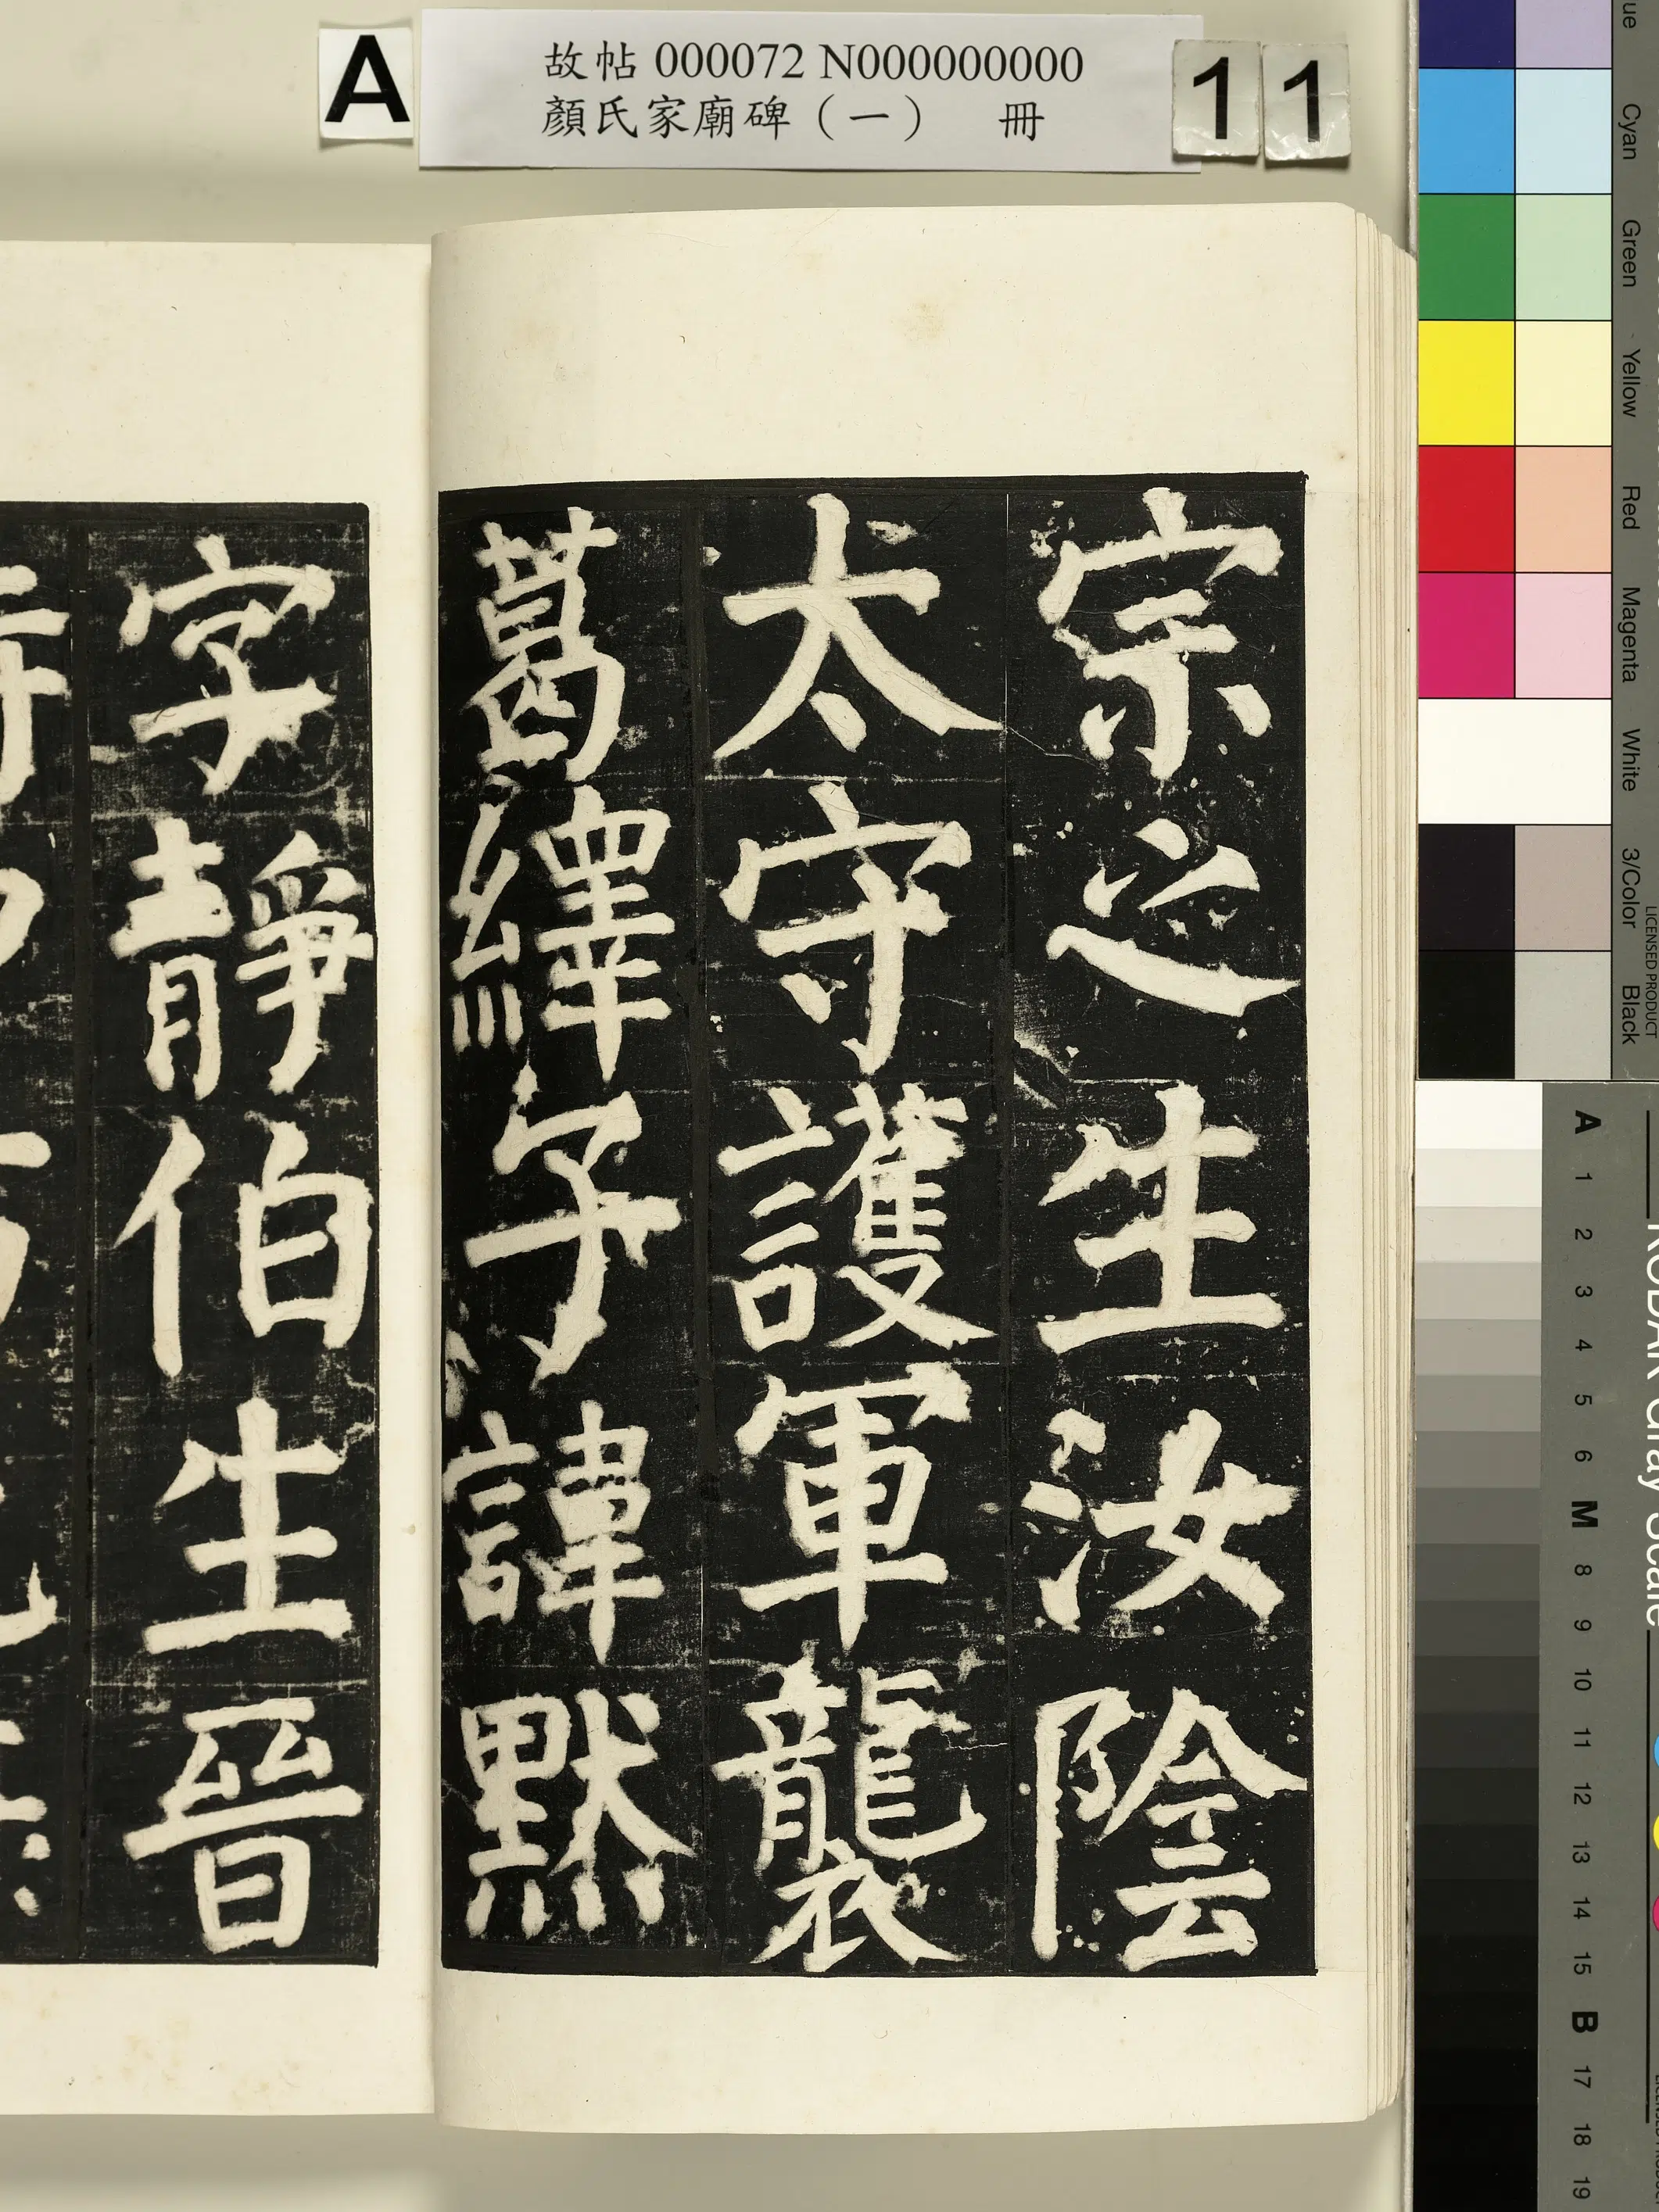 A
故帖 000072 N000000000
顏氏家廟碑（一） 冊
11
宗之生汝陰
太守護軍襲
葛繹子諱默
字靜伯生晉
Cyan
Green
Yellow
Red
Magenta
White
3/Color
Black
LICENSED PRODUCT
KODAK Gray Scale
A 1 2 3 4 5 6 M 8 9 10 11 12 13 14 15 B 17 18 19